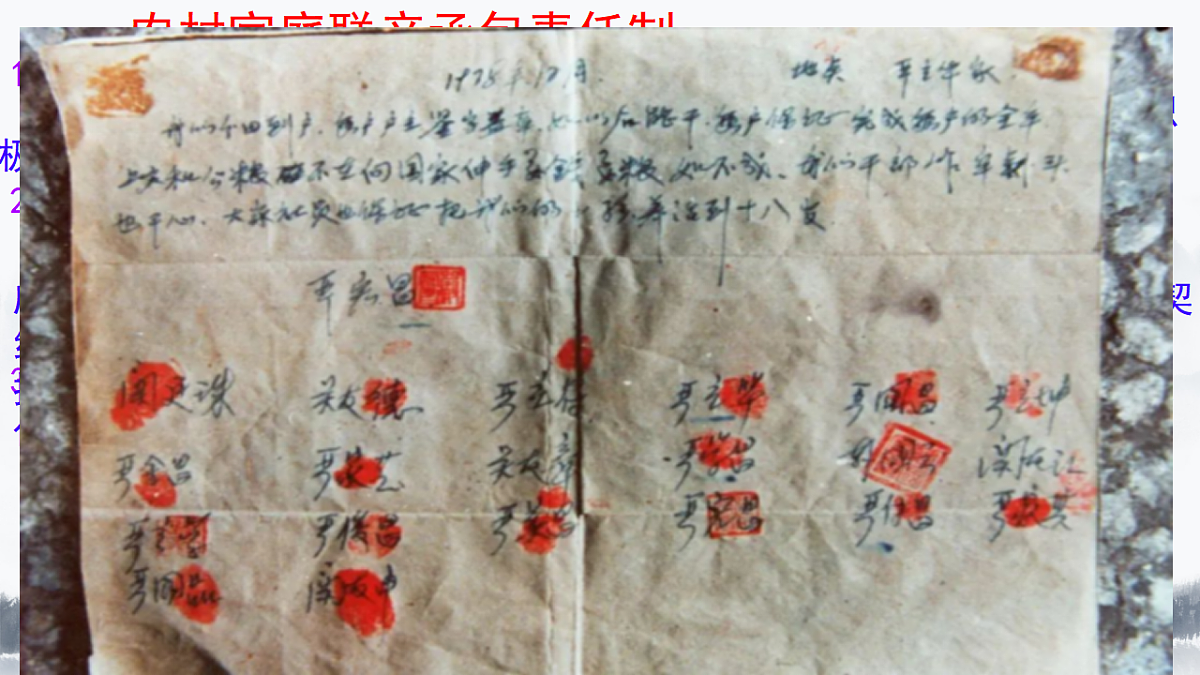 农村家庭联产承包责任制
1978年12月. 地点 严立华家.
我们分田到户,每户户主签字盖章,如以后能干,每户保证完成每户的全年
上交和公粮 不在向国家伸手要钱要粮 如不成,我们干部作牢刹头
也干心,大家社员也保证把我们的小孩养活到十八岁.
严宏昌
关廷珠 关友德 严立符 严立华 严国昌 严立坤
严金昌 严家芝 关友章 严学昌 韩国云 关友江
严立学 严俊昌 严美昌 严宏昌 严付昌 严家其
严国品 关友申
极
契